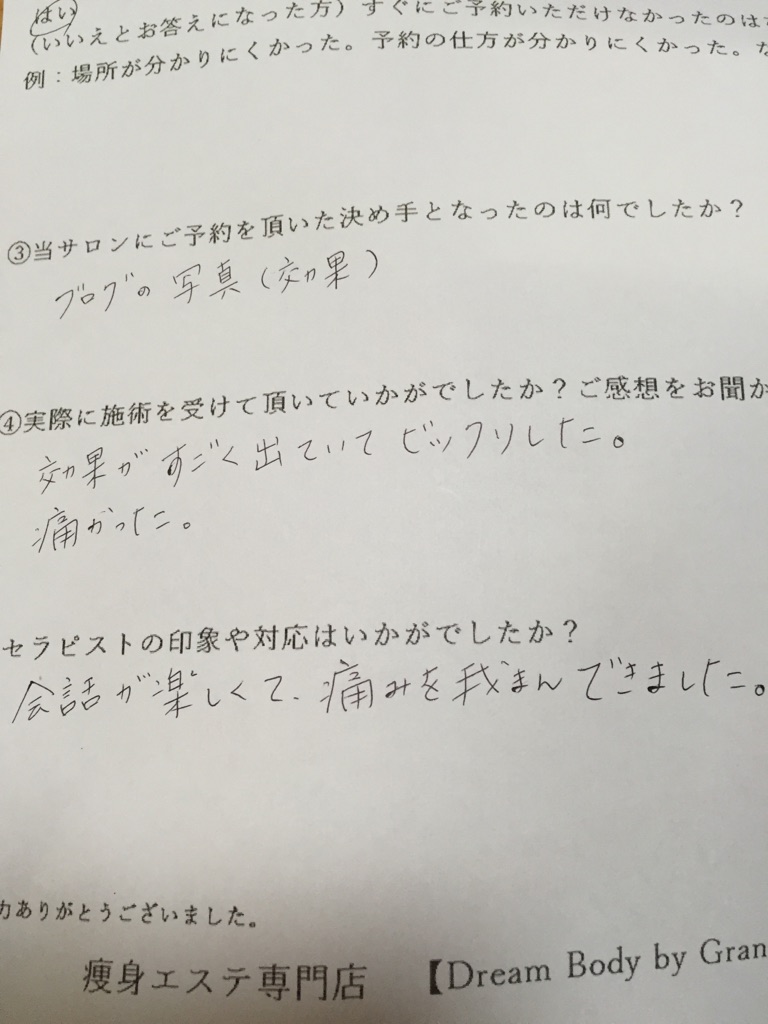 はい
(いいえとお答えになった方）すぐにご予約いただけなかったのは
例：場所が分かりにくかった。予約の仕方が分かりにくかった。な
③当サロンにご予約を頂いた決め手となったのは何でしたか？
ブログの写真(効果)
④実際に施術を受けて頂いていかがでしたか？ご感想をお聞か
効果がすごく出ていてビックリした。
痛かった。
セラピストの印象や対応はいかがでしたか？
会話が楽しくて、痛みを我まんできました。
力ありがとうございました。
痩身エステ専門店 【Dream Body by Gran